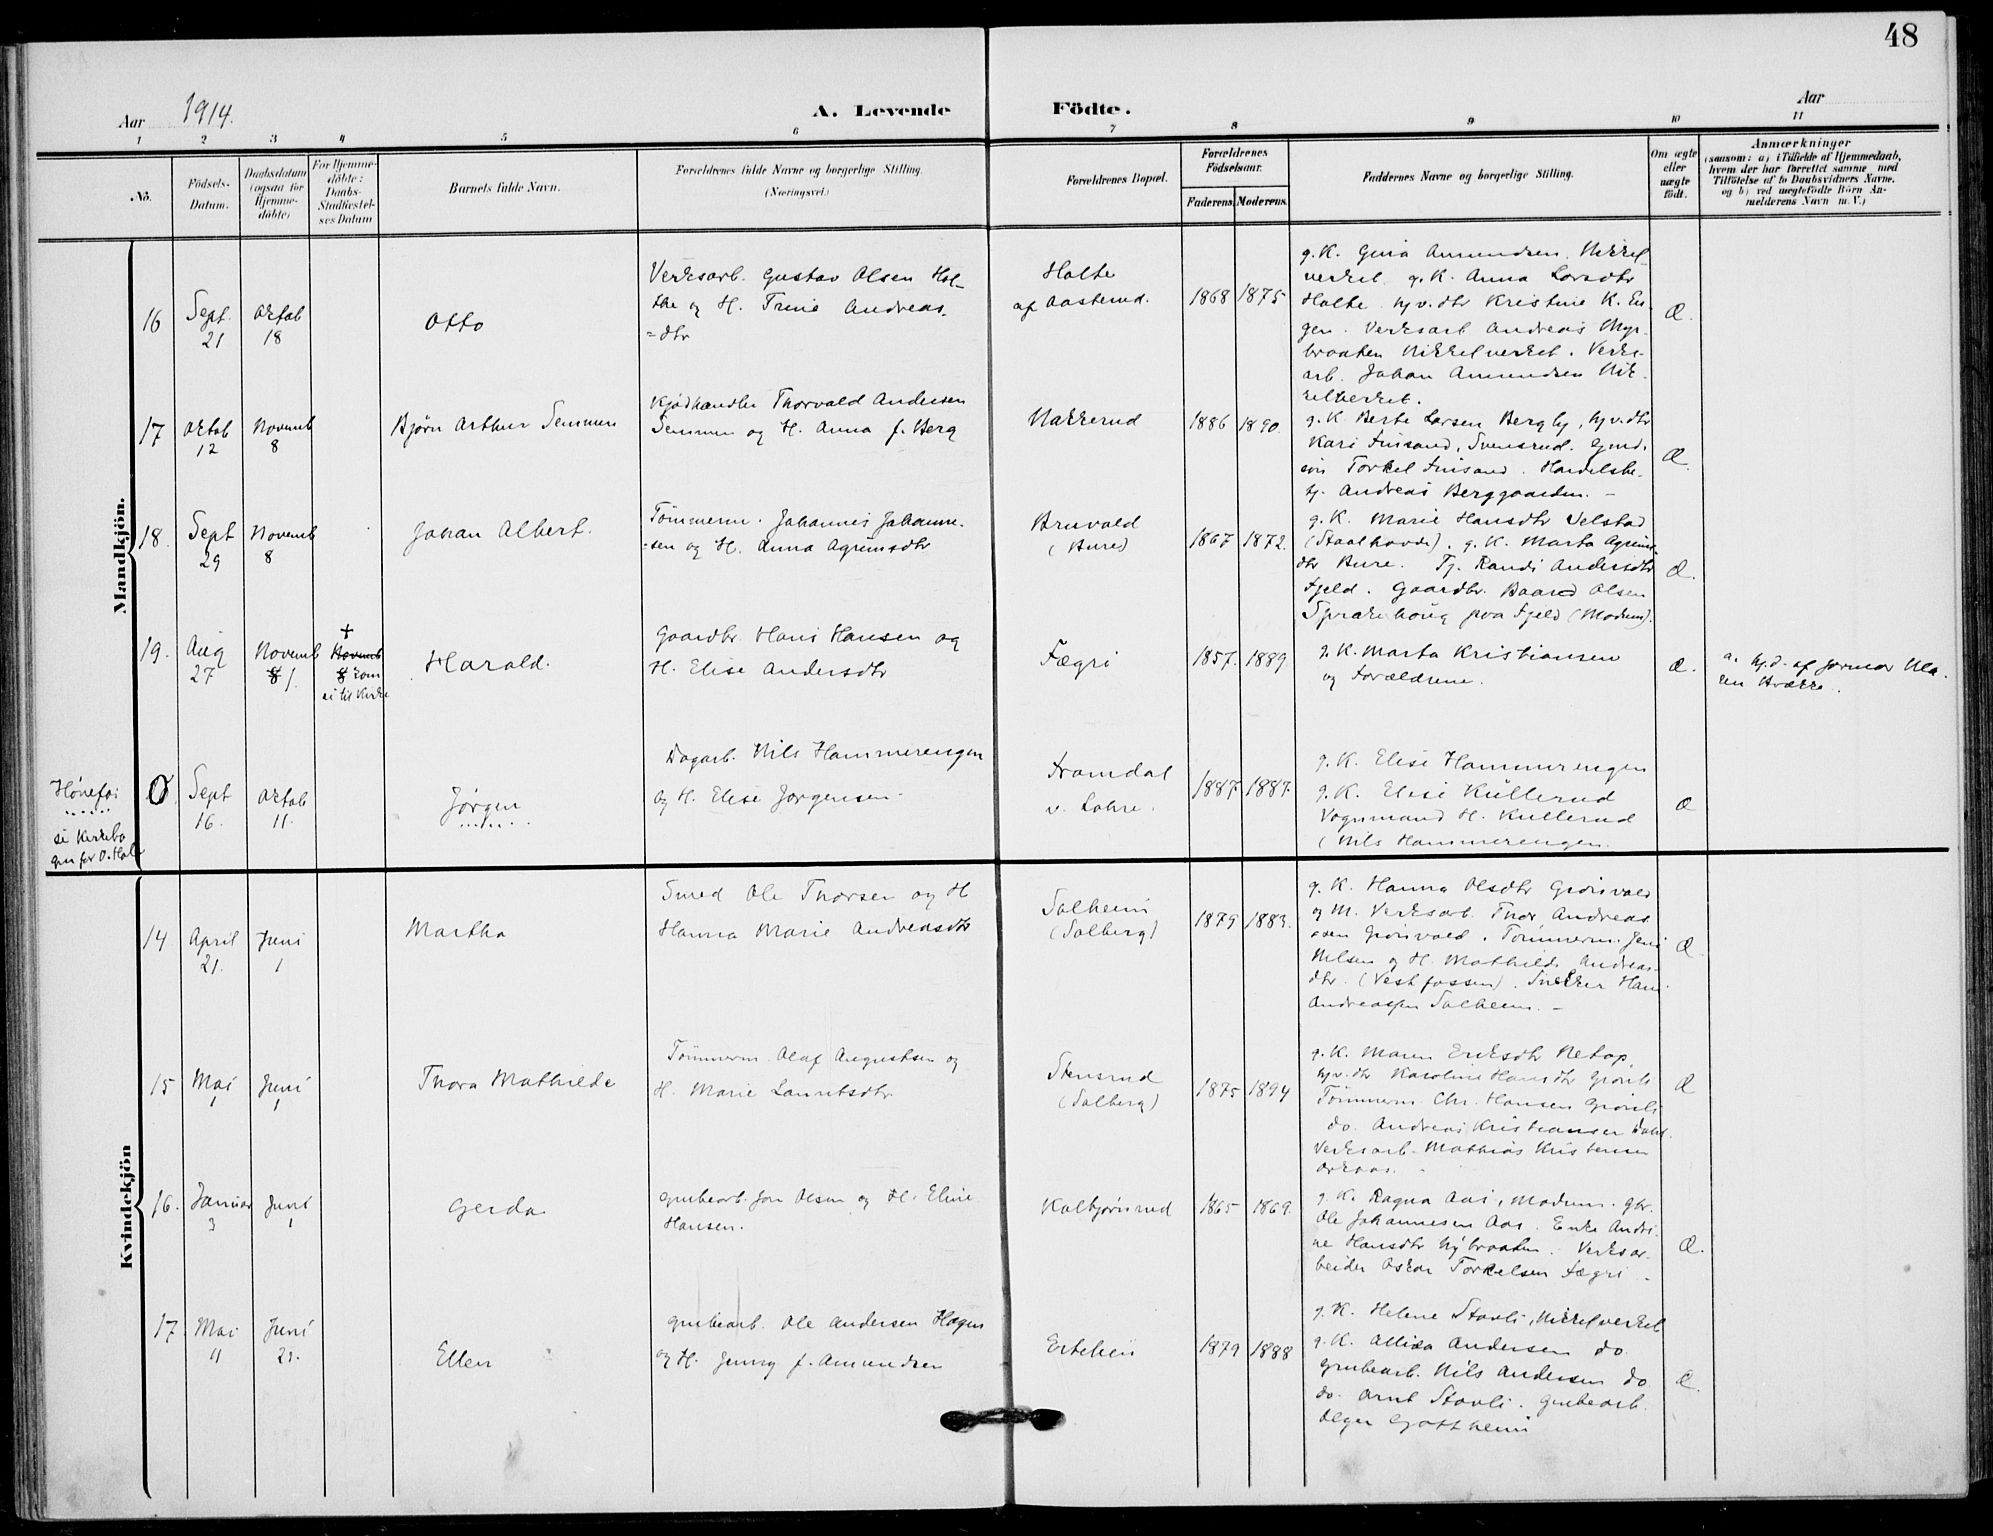 48
Aar 1914.
A. Levende Födte.
Aar
1 2 3 4 5 6 7 8 9 10 11
No.
Födsels-
Datum.
Daabsdatum
(ogsaa for
Hjemme-
döbte)
For Hjemme-
döbte:
Daabs-
Stadfæstel-
ses Datum
Barnets fulde Navn.
Forældrenes fulde Navne og borgerlige Stilling.
(Næringsvei.)
Forældrenes Bopæl.
Forældrenes
Födselsaar.
Faderens. Moderens.
Faddernes Navne og borgerlige Stilling.
Om ægte
eller
uægte
födt.
Anmærkninger
(saasom: a) i Tilfælde af Hjemmedaab,
hvem der har forrettet samme med
Tilföielse af to Daabsvidners Navne,
og b) ved uægtefödte Börn An-
melderens Navn m. V.)
Mandkjön.
16
Sept.
21
Oktob
18
Otto
Verksarb. Gustav Olsen Hol-
the og H. Trine Andreas-
=dtr
Holte
af Aasterud.
1868 1875
g. K. Gina Amundsen Nikkel-
verket. g. K. Anna Larsdtr
Holte. Hjv.dtr Kristine K. En-
gen. Verksarb Andreas Myr-
braaten Nikkelverket. Verks-
arb. Johan Amundsen Nik-
kelverket.
Æ.
17
Oktob
12
Novemb
8
Bjørn Arthur Semmen
Kjødhandler Thorvald Andersen
Semmen og H. Anna f. Berg
Nakkerud
1886 1890.
g. K. Berte Larsen Bergby, hjv.dtr
Kari Finsand, Svensrud. Gmd.
søn Torkel Finsand. Handelsbe-
tj. Andreas Berggaarden. –
Æ.
18.
Sept
29
Novemb
8
Johan Albert.
Tømmerm. Johannes Johanne-
=sen og H. Anna Agrimsdtr
Bruvold
(Bure)
1867 1872.
g. K. Marie Hansdtr Velstad
(Staalhovde). g. K. Marta Agrims-
dtr Bure. Tj. Randi Andersdtr
Fjeld. Gaardbr. Baard Olsen
Sprakehoug paa Fjeld (Modum).
Æ.
19.
Aug
27
Novemb
8 1.
+
Novemb
8 kom
ei til Kirke
Harald.
Gaardbr. Hans Hansen og
H. Elise Andersdtr
Fægri
1857. 1889.
g. K. Marta Kristiansen
og Forældrene.
Æ.
a. hj.d. af Jormor Ma-
ren Brække.
Hønefos
se Kirkebo
gen for O. Hole
0.
Sept
16.
Oktob
11.
Jørgen
Dagarb. Nils Hammerengen
og H. Elise Jørgensen.
Framdal
v. Lohre.
1887 1887.
g. K. Elise Hammerengen
g. K. Elise Küllerud
Vognmand H. Kullerud
(Nils Hammerengen.
Æ
Kvindekjön
14
April
21.
Juni
1
Martha
Smed Ole Thorsen og H
Hanna Marie Andreasdtr
Solheim
(Solberg)
1879 1883.
g. K. Hanna Olsdtr Grønvold
og M. Verksarb. Thor Andreas-
=sen Grønvold. Tømmerm. Jens
Nilsen og H. Mathilde Andreas-
dtr. (Vestfossen). Snekker Hans
Andreassen Solheim. –
Æ
15
Mai
1
Juni
1
Thora Mathilde
Tømmerm. Olaf Augustsen og
H. Marie Lauritsdtr.
Stensrud
(Solberg)
1875 1894
g. K. Maren Eriksdtr Retop,
hjv.dtr Karoline Hansdtr Grønli
Tømmerm. Chr. Hansen Grønli
do. Andreas Kristiansen
Verksarb. Mathias Kristensen
Æ
16.
Januar
3
Juni
1
Gerda
Grubearb. Jon Olsen og H. Eline
Hansen.
Kolbjørnsrud
1865 1869.
g. K. Ragna Aas, Modum. Gbr.
Ole Johannesen Aas. Enke Andri-
ne Hansdtr Nybraaten. Verksar-
beider Oskar Torkelsen Fægri.
Æ.
17.
Mai
11
Juni
21.
Ellen
Grubearb. Ole Andersen Hagen
og H. Jenny f. Amundsen
Ertelien
1879 1888
g. K. Helene Stovli, Nikkelverket
g. K. Andersen do.
Grubearb. Nils Andersen do
do. Arnt Stovli. Grubearb.
Gottheim
Æ.